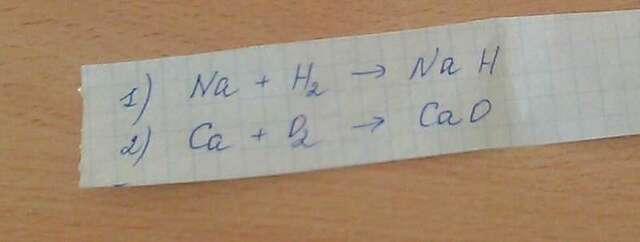 1) Na + H₂ → NaH
2) Ca + O₂ → CaO